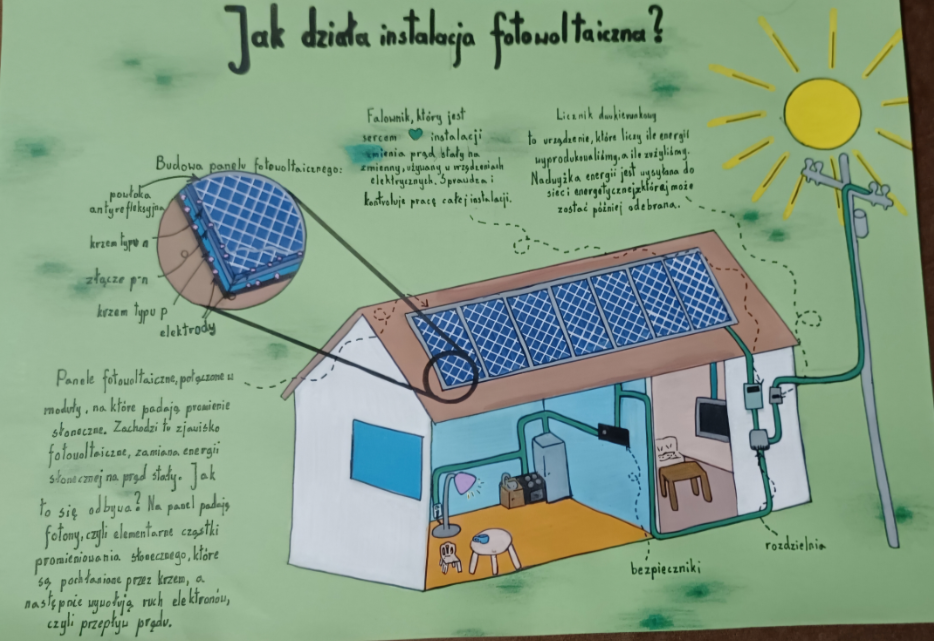 Jak działa instalacja fotowoltaiczna?
Falownik, który jest
sercem instalacji
zmienia prąd stały na
zmienny, używany w urządzeniach
elektrycznych. Sprawdza i
kontroluje pracę całej instalacji.
Licznik dwukierunkowy
to urządzenie, które liczy ile energii
wyprodukowaliśmy, a ile zużyliśmy.
Nadwyżka energii jest wysyłana do
sieci energetycznej, z której może
zostać później odebrana.
Budowa panelu fotowoltaicznego:
powłoka
antyrefleksyjna
krzem typu n
złącze p-n
krzem typu p
elektrody
Panele fotowoltaiczne, połączone w
moduły, na które padają promienie
słoneczne. Zachodzi tu zjawisko
fotowoltaiczne, zamiana energii
słonecznej na prąd stały. Jak
to się odbywa? Na panel padają
fotony, czyli elementarne cząstki
promieniowania słonecznego, które
są pochłaniane przez krzem, a
następnie wywołują ruch elektronów,
czyli przepływ prądu.
bezpieczniki
rozdzielnia